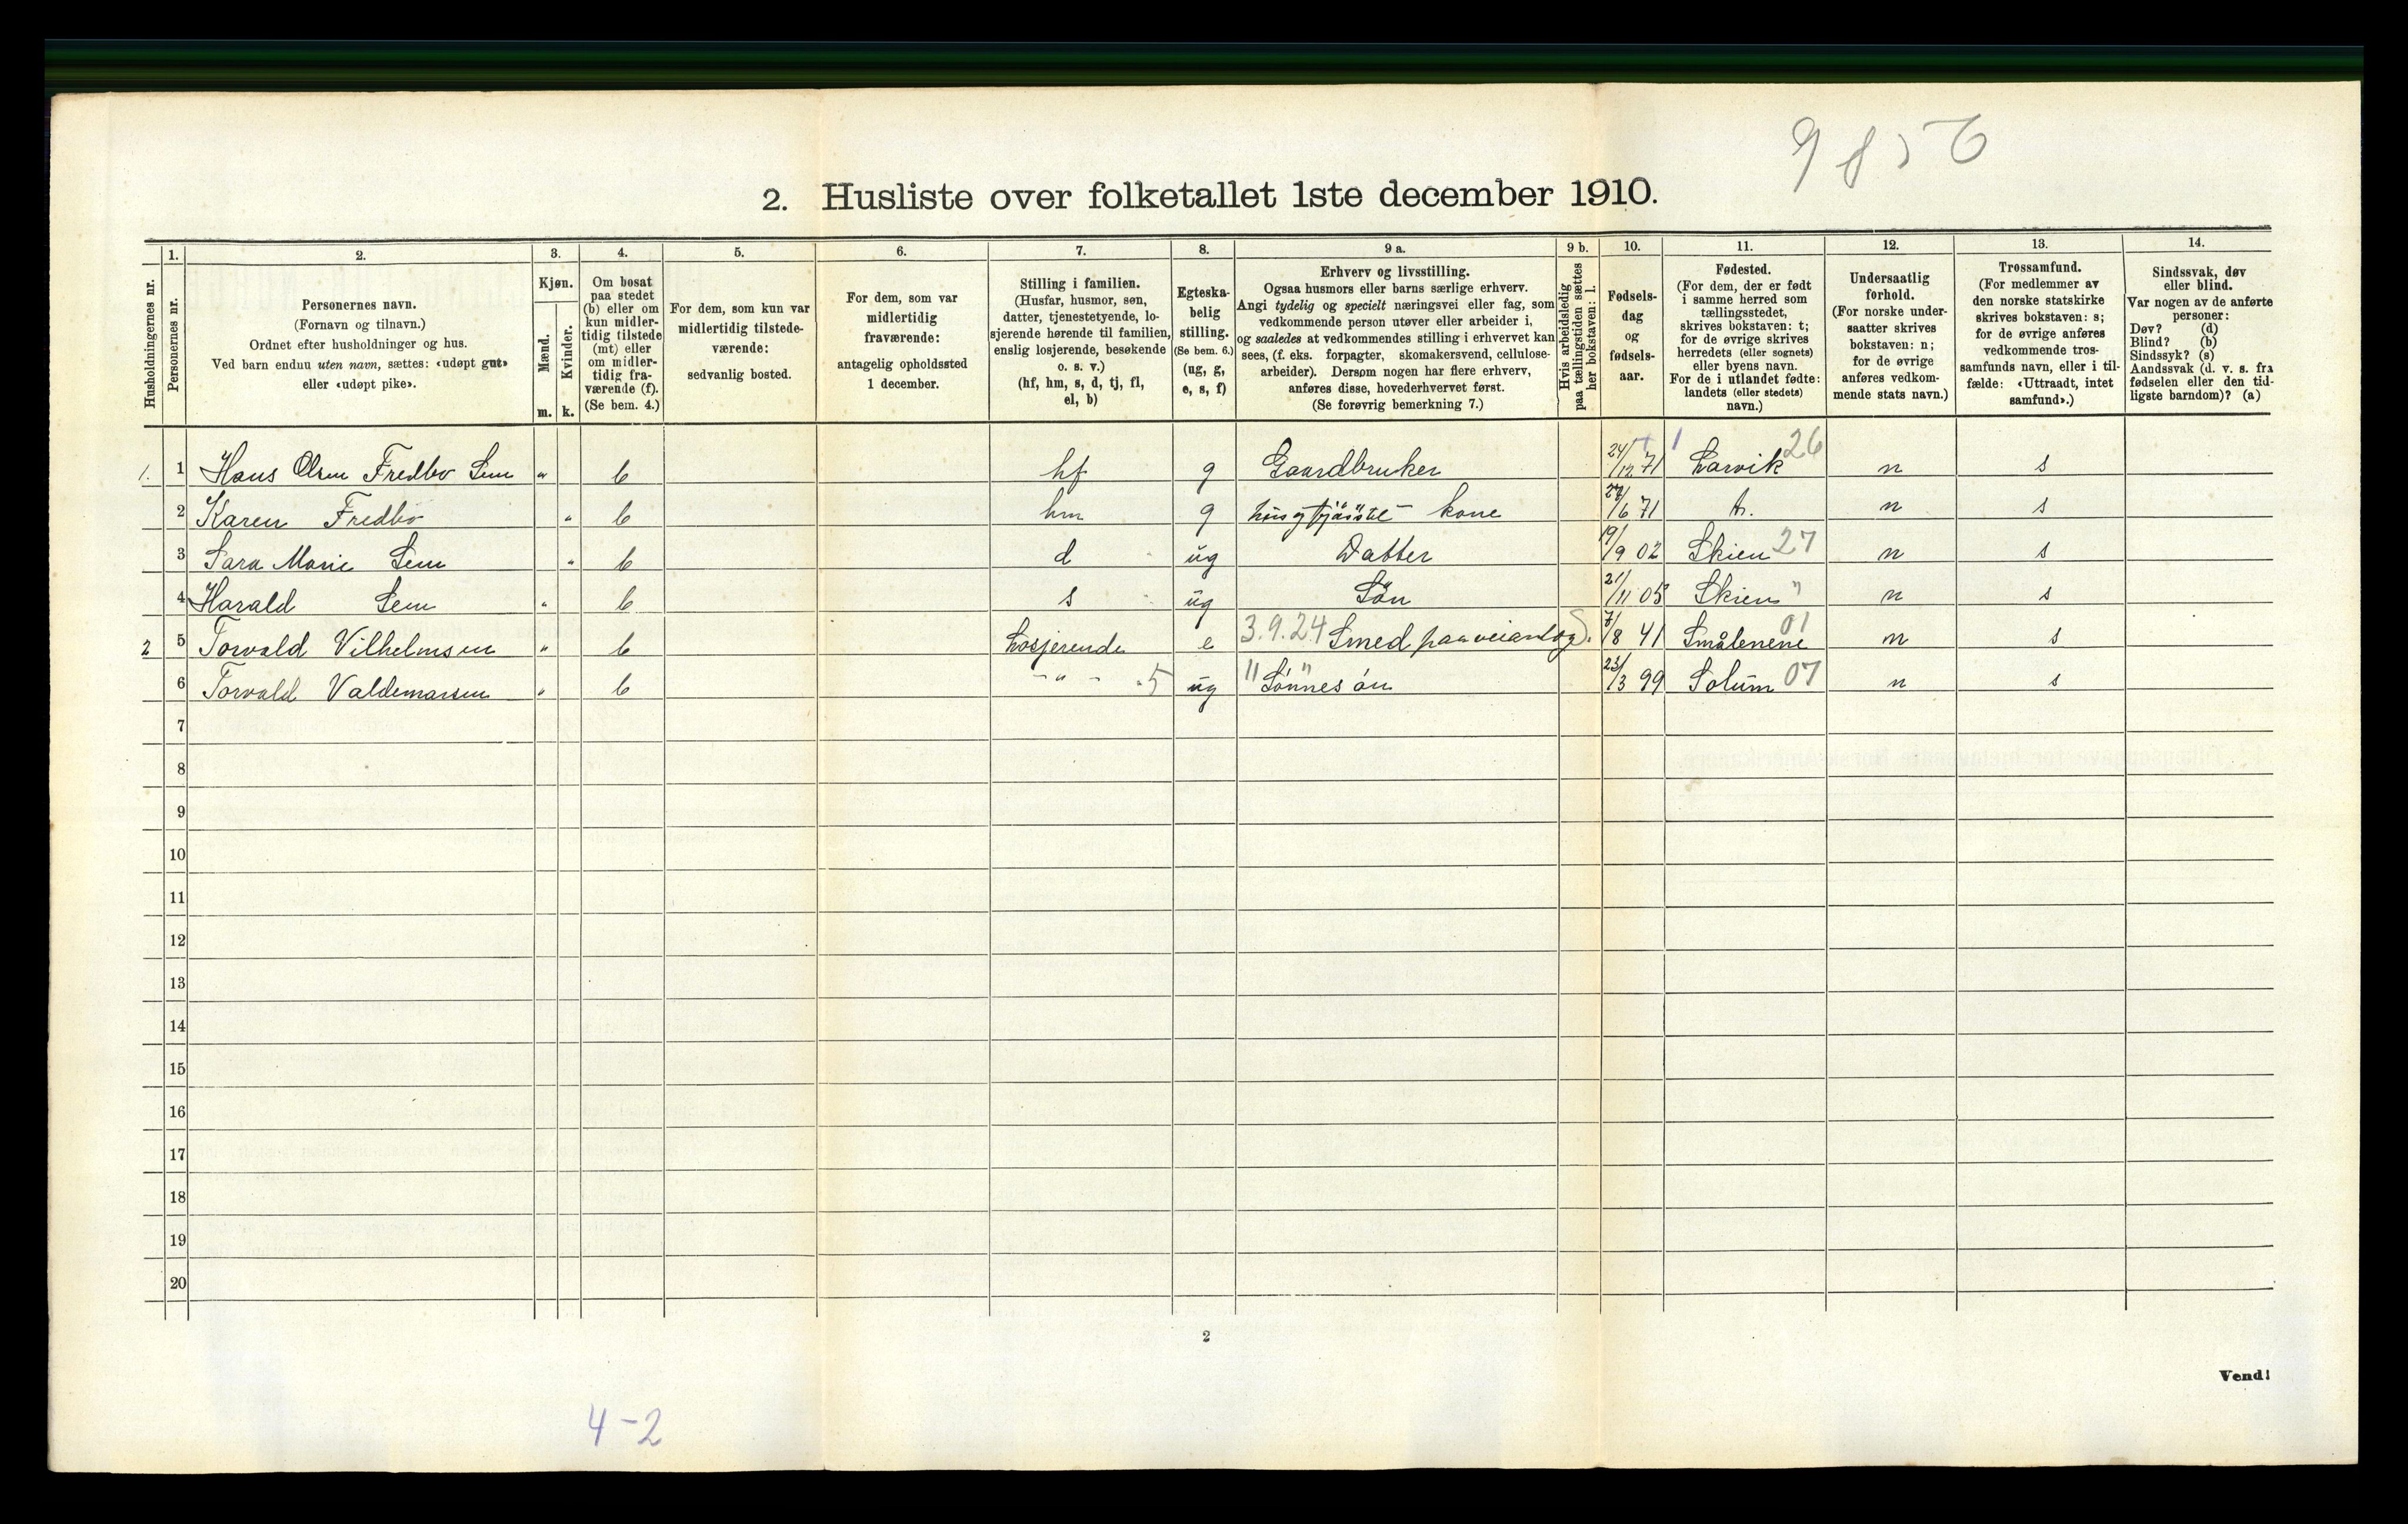 9856
2. Husliste over folketallet 1ste december 1910.
Husholdningernes nr.
1. Personernes nr.
2. Personernes navn. (Fornavn og tilnavn.) Ordnet efter husholdninger og hus. Ved barn endnu uten navn, sættes: «udøpt gut» eller «udøpt pike».
3. Kjøn. Mænd. m. Kvinder. k.
4. Om bosat paa stedet (b) eller om kun midlertidig tilstede (mt) eller om midlertidig fraværende (f). (Se bem. 4.)
5. For dem, som kun var midlertidig tilstedeværende: sedvanlig bosted.
6. For dem, som var midlertidig fraværende: antagelig opholdssted 1 december.
7. Stilling i familien. (Husfar, husmor, søn, datter, tjenestetyende, losjerende hørende til familien, enslig losjerende, besøkende o. s. v.) (hf, hm, s, d, tj, fl, el, b)
8. Egteskabelig stilling. (Se bem. 6.) (ug, g, e, s, f)
9 a. Erhverv og livsstilling. Ogsaa husmors eller barns særlige erhverv. Angi tydelig og specielt næringsvei eller fag, som vedkommende person utøver eller arbeider i, og saaledes at vedkommendes stilling i erhvervet kan sees, (f. eks. forpagter, skomakersvend, cellulosearbeider). Dersom nogen har flere erhverv, anføres disse, hovederhvervet først. (Se forøvrig bemerkning 7.)
9 b. Hvis arbeidsledig paa tællingstiden sættes her bokstaven: l.
10. Fødselsdag og fødselsaar.
11. Fødested. (For dem, der er født i samme herred som tællingsstedet, skrives bokstaven: t; for de øvrige skrives herredets (eller sognets) eller byens navn. For de i utlandet fødte: landets (eller stedets) navn.)
12. Undersaatlig forhold. (For norske undersaatter skrives bokstaven: n; for de øvrige anføres vedkommende stats navn.)
13. Trossamfund. (For medlemmer av den norske statskirke skrives bokstaven: s; for de øvrige anføres vedkommende trossamfunds navn, eller i tilfælde: «Uttraadt, intet samfund».)
14. Sindssvak, døv eller blind. Var nogen av de anførte personer: Døv? (d) Blind? (b) Sindssyk? (s) Aandssvak (d. v. s. fra fødselen eller den tidligste barndom)? (a)
1. 1 Hans Olsen Fredbo Sem " b hf g Gaardbruker 24/12 71 Larvik 26 n s
2 Karen Fredbo " b hm g kone 27/6 71 t. n s
3 Sara Marie Sem " b d ug Datter 19/9 02 Skien 27 n s
4 Harald Sem " b s ug Søn 21/11 05 Skien " n s
2 5 Torvald Vilhelmsen " b Losjerende e 3.9.24 Smed paa veianlæg S. 7/8 41 Smålenene 01 n s
6 Torvald Valdemarsen " b - " - 5 ug " " Sønnesøn 23/3 99 Solum 07 n s
7
8
9
10
11
12
13
14
15
16
17
18
19
20
2
Vend!
4-2